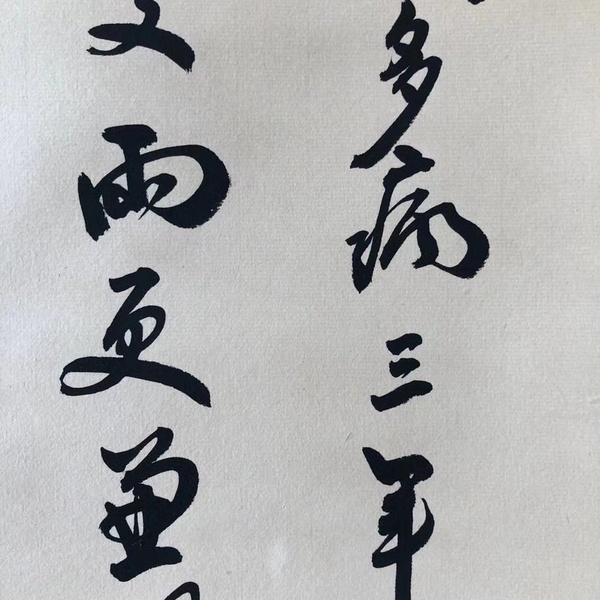 多病三年
又雨更兼